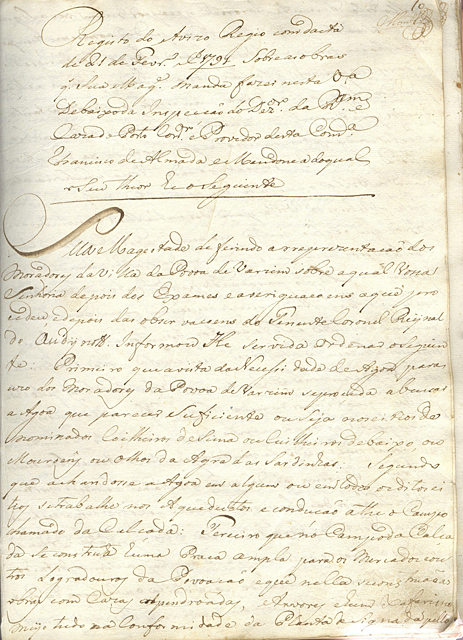 Registo do Avizo Regio com dacta
de 21 de Fevr.º de 1791 Sobre as obras
q. Sua Mag.e manda fazer nesta V.a
Debaixo da Inspecção do Dez.or da
Caza do Porto Cor.or e Provedor desta Com.ca
Francisco de Almada e Mendonca do qual
o Seu theor he o Seguinte
Sua Magestade deferindo a reprezentação dos
Moradores da Villa da Povoa de Varzim sobre a qual Vossa
Senhoria depois dos Exames e averiguacoens a que pro
cedeu e depois das observacoens do Tenente Coronel Reynal
do Oudinott. Informou He servida ordenar o Seguin
te: Primeiro que a vista da Necessidade de Agoa para
uzo dos Moradores da Povoa de Varzim se proceda a buscar
a Agoa que parecer Sufficiente ou Seja nos citios de
nominados Coelheiros de Sima ou Coelheiros debaixo, ou
ou olhos da Agra das Sardinhas. Segundo
que achandose a Agoa em algum ou em todos os ditos ci
tios, se trabalhe nos Aqueductos e conducao athe o Campo
chamado da Calcada: Terceiro que no Campo da Calca
da se construa huma Praca ampla para os Mercados e ou
tros Logradouros da Povoação e que nella
com Cazas Arvores e hum
tudo na Conformidade da Planta asignada pello